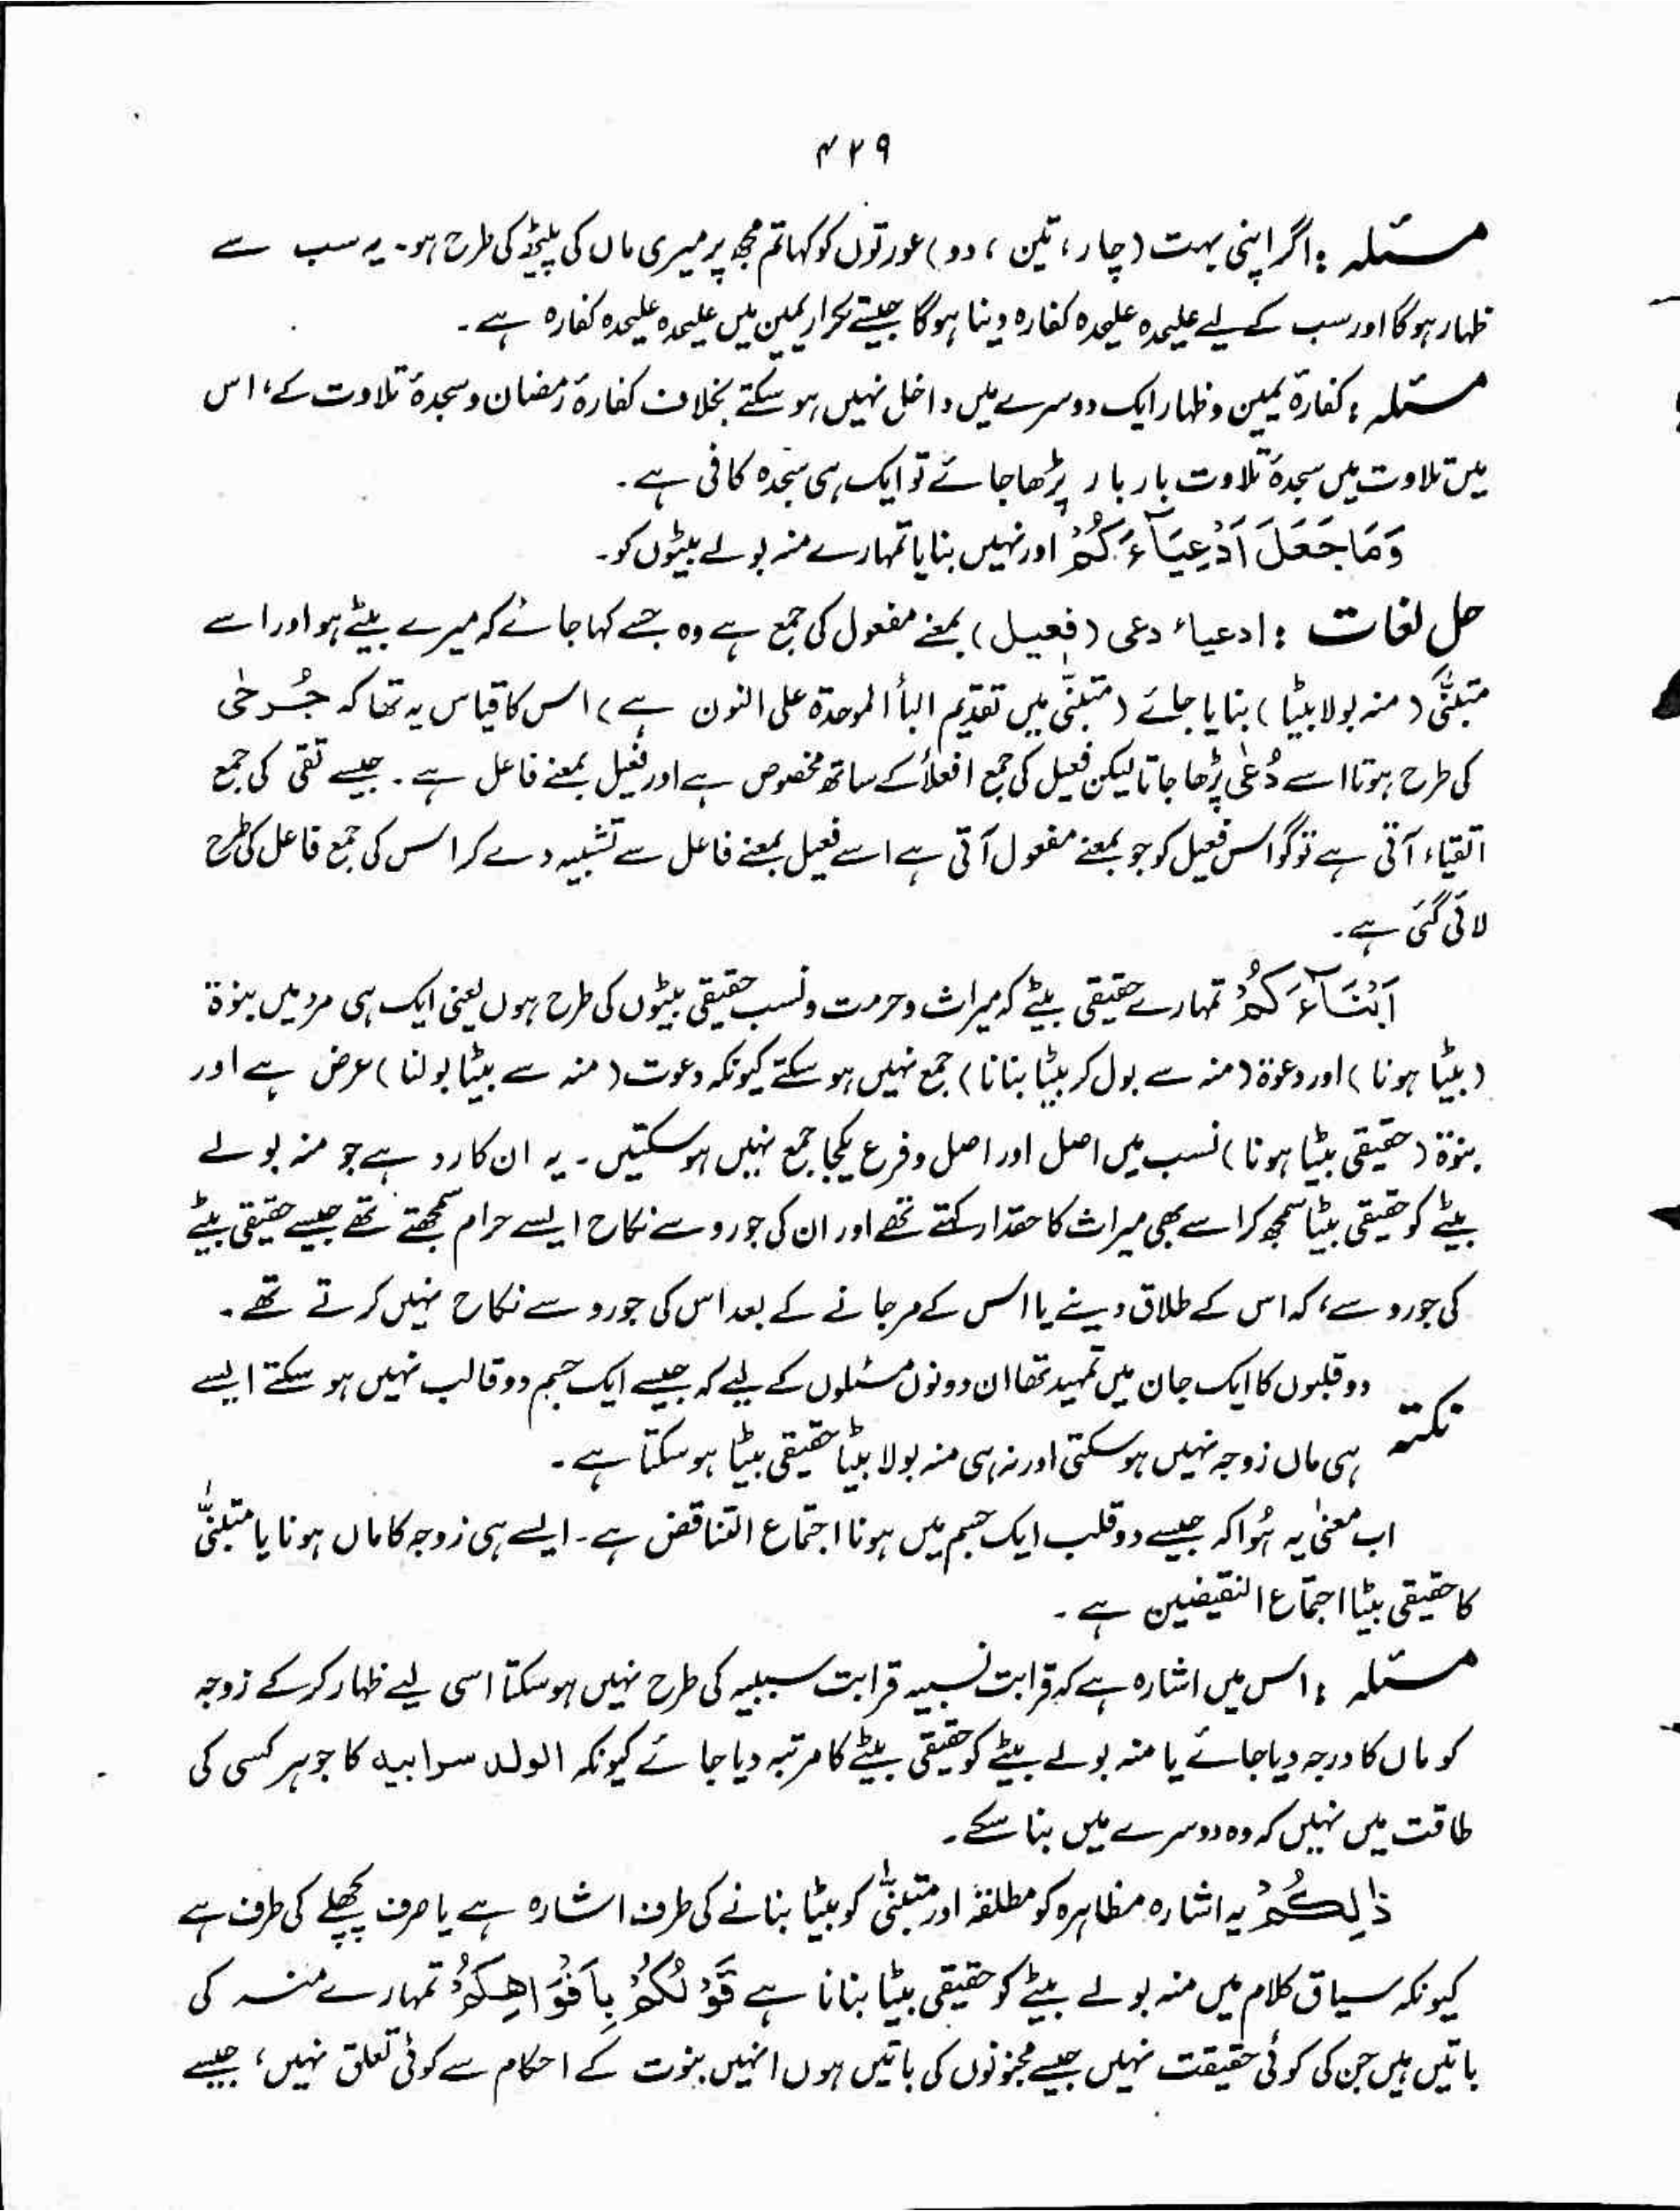 ۴۲۹
مسئلہ : اگر اپنی بہت (چار، تین، دو) عورتوں کو کہا تم مجھ پر میری ماں کی پیٹھ کی طرح ہو۔ یہ سب سے
ظہار ہوگا اور سب کے لیے علیحدہ علیحدہ کفارہ دینا ہوگا جیسے تکرار یمین میں علیحدہ علیحدہ کفارہ ہے۔
مسئلہ : کفارۂ یمین وظہار ایک دوسرے میں داخل نہیں ہو سکتے بخلاف کفارۂ رمضان وسجدۂ تلاوت کے، اس
میں تلاوت میں سجدۂ تلاوت بار بار پڑھا جائے تو ایک ہی سجدہ کافی ہے۔
وَمَا جَعَلَ اَدْعِیَآءَکُمْ اور نہیں بنایا تمہارے منہ بولے بیٹوں کو۔
حل لغات : ادعیاء دعی (فعیل) بمعنے مفعول کی جمع ہے وہ جسے کہا جائے کہ میرے بیٹے ہو اور اسے
متبنّٰی (منہ بولا بیٹا) بنایا جائے (متبنّٰی میں تقدیم البأ الموحدۃ علی النون ہے) اس کا قیاس یہ تھا کہ جُرحٰی
کی طرح ہوتا اسے دُعٰی پڑھا جاتا لیکن فعیل کی جمع افعلأ کے ساتھ مخصوص ہے اور فعیل بمعنے فاعل ہے۔ جیسے تقی کی جمع
اتقیاء آتی ہے تو گو اس فعیل کو جو بمعنے مفعول آتی ہے اسے فعیل بمعنے فاعل سے تشبیہ دے کر اس کی جمع فاعل کی طرح
لائی گئی ہے۔
اَبْنَآءَکُمْ تمہارے حقیقی بیٹے کہ میراث وحرمت ونسب حقیقی بیٹوں کی طرح ہوں یعنی ایک ہی مرد میں بنوۃ
(بیٹا ہونا) اور دعوۃ (منہ سے بول کر بیٹا بنانا) جمع نہیں ہو سکتے کیونکہ دعوت (منہ سے بیٹا بولنا) عرض ہے اور
بنوۃ (حقیقی بیٹا ہونا) نسب میں اصل اور اصل وفرع یکجا جمع نہیں ہو سکتیں۔ یہ ان کا رد ہے جو منہ بولے
بیٹے کو حقیقی بیٹا سمجھ کر اسے بھی میراث کا حقدار کہتے تھے اور ان کی جورو سے نکاح ایسے حرام سمجھتے تھے جیسے حقیقی بیٹے
کی جورو سے، کہ اس کے طلاق دینے یا اس کے مرجانے کے بعد اس کی جورو سے نکاح نہیں کرتے تھے۔
نکتہ دو قلبوں کا ایک جان میں تمہید تھا ان دونوں مسئلوں کے لیے کہ جیسے ایک جسم دو قالب نہیں ہو سکتے ایسے
ہی ماں زوجہ نہیں ہو سکتی اور نہ ہی منہ بولا بیٹا حقیقی بیٹا ہو سکتا ہے۔
اب معنیٰ یہ ہُوا کہ جیسے دو قلب ایک جسم میں ہونا اجتماع التناقض ہے۔ ایسے ہی زوجہ کا ماں ہونا یا متبنّٰی
کا حقیقی بیٹا اجتماع النقیضین ہے۔
مسئلہ : اس میں اشارہ ہے کہ قرابت نسبیہ قرابت سببیہ کی طرح نہیں ہو سکتا اسی لیے ظہار کرکے زوجہ
کو ماں کا درجہ دیا جائے یا منہ بولے بیٹے کو حقیقی بیٹے کا مرتبہ دیا جائے کیونکہ الولد سرابیہ کا جوہر کسی کی
طاقت میں نہیں کہ وہ دوسرے میں بنا سکے۔
ذٰلِکُمْ یہ اشارہ مظاہرہ کو مطلقہ اور متبنّٰی کو بیٹا بنانے کی طرف اشارہ ہے یا صرف پچھلے کی طرف ہے
کیونکہ سیاق کلام میں منہ بولے بیٹے کو حقیقی بیٹا بنانا ہے قَوْلُکُمْ بِاَفْوَاهِکُمْ تمہارے منہ کی
باتیں ہیں جن کی کوئی حقیقت نہیں جیسے مجنونوں کی باتیں ہوں انہیں بنوت کے احکام سے کوئی تعلق نہیں، جیسے